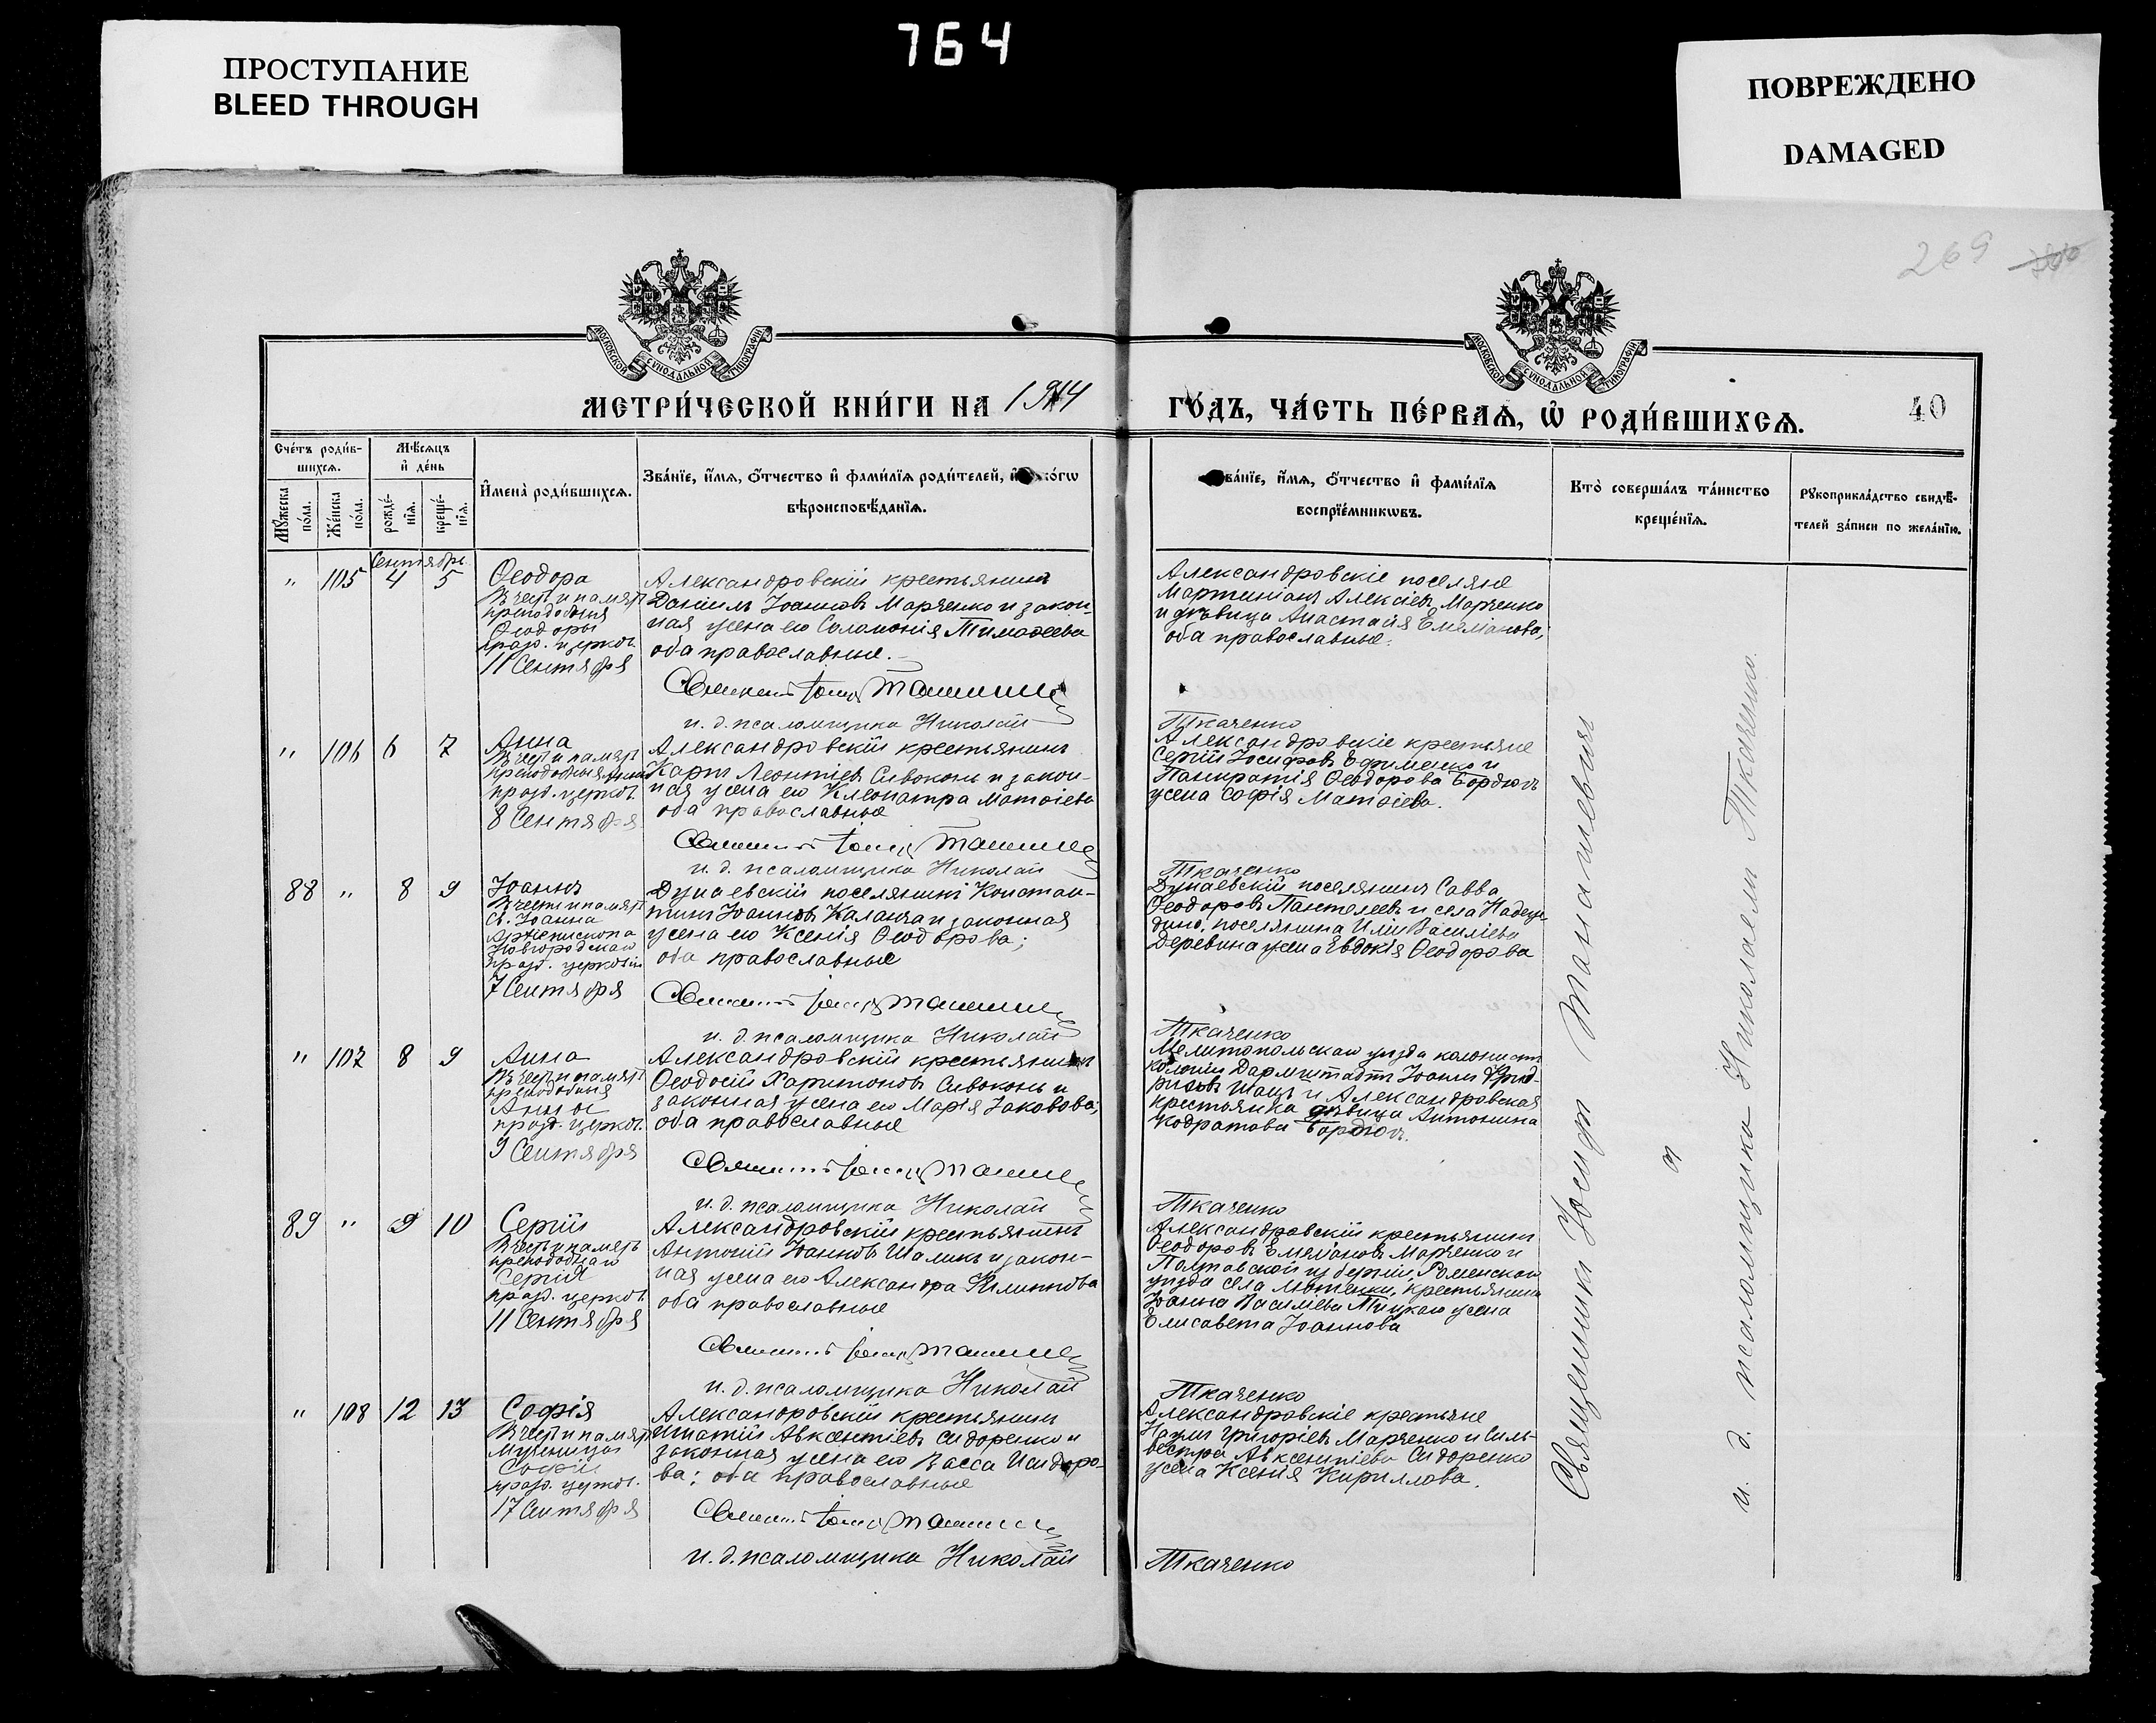 764
ПРОСТУПАНИЕ
BLEED THROUGH
ПОВРЕЖДЕНО
DAMAGED
269
МОСКОВСКОЙ СѴНОДАЛЬНОЙ ТИПОГРАФІИ
МОСКОВСКОЙ СѴНОДАЛЬНОЙ ТИПОГРАФІИ
МЕТРИ́ЧЕСКОЙ КНИ́ГИ НА 1914
ГО́ДЪ, ЧА́СТЬ ПЕ́РВАѦ, Ѽ РОДИ́ВШИХСѦ.
40
Сче́тъ роди́в-
шихсѧ.
Мѣ́сѧцъ
и҆ де́нь
Мꙋ́жеска по́ла.
Же́нска по́ла.
рожде́-
нїѧ.
креще́-
нїѧ.
И҆мена̀ роди́вшихсѧ.
Зва́нїе, и҆́мѧ, ѻ҆́тчество и҆ фами́лїѧ роди́телей, и҆ ко́гѡ
вѣроисповѣ́данїѧ.
Зва́нїе, и҆́мѧ, ѻ҆́тчество и҆ фами́лїѧ
воспрїе́мникѡвъ.
Кто̀ соверша́лъ та́инство
креще́нїѧ.
Рꙋкоприкла́дство свидѣ́-
телей за́писи по жела́нїю.
Сентябрь
" 105 4 5
Ѳеодора
Въ честь и память
преподобныя
Ѳеодоры
празд. церков.
11 Сентября
Александровскій крестьянинъ
Даніилъ Іоанновъ Марченко и закон-
ная жена его Соломонія Тимоѳеева
оба православные.
Священникъ Іосифъ Танашевичъ
и. д. псаломщика Николай
Александровскіе поселяне
Мартиніанъ Алексіевъ Марченко
и дѣвица Анастасія Емеліанова;
оба православные.
Ткаченко
" 106 6 7
Анна
Въ честь и память
преподобныя Анны
празд. церков.
8 Сентября
Александровскій крестьянинъ
Карпъ Леонтіевъ Сивоконь и закон-
ная жена его Клеопатра Матѳіева
оба православные
Священникъ Іосифъ Танашевичъ
и. д. псаломщика Николай
Александровскіе крестьяне
Сергій Іосифовъ Ефименко и
Панкратія Ѳеодорова Бордюгъ
жена Софія Матѳіева.
Ткаченко
88 " 8 9
Іоаннъ
Въ честь и память
Св. Іоанна
Архіепископа
Новгородскаго
празд. церковію
7 Сентября
Дунаевскій поселянинъ Констан-
тинъ Іоанновъ Каланча и законная
жена его Ксенія Ѳеодорова;
оба православные
Священникъ Іосифъ Танашевичъ
и. д. псаломщика Николай
Дунаевскій поселянинъ Савва
Ѳеодоровъ Пантелеевъ и села Надеж-
дино, поселянина Иліи Василіева
Деревина жена Евдокія Ѳеодорова
Ткаченко
" 107 8 9
Анна
Въ честь и память
преподобныя
Анны
празд. церков.
9 Сентября
Александровскій крестьянинъ
Ѳеодосій Харитоновъ Сивоконь и
законная жена его Марія Іаковова;
оба православные
Священникъ Іосифъ Танашевичъ
и. д. псаломщика Николай
Мелитопольскаго уѣзда колонистъ
колоніи Дармштадтъ Іоаннъ Фрид-
риховъ Шацъ и Александровская
крестьянка дѣвица Антонина
Кодратова Бордюгъ.
Ткаченко
89 " 9 10
Сергій
Въ честь и память
преподобнаго
Сергія
празд. церков.
11 Сентября
Александровскій крестьянинъ
Антоній Іоанновъ Шаликъ и закон-
ная жена его Александра Филиппова
оба православные
Священникъ Іосифъ Танашевичъ
и. д. псаломщика Николай
Александровскій крестьянинъ
Ѳеодоровъ Емеліановъ Марченко и
Полтавской губерніи, Роменскаго
уѣзда села крестьянина
Іоанна Василіева жена
Елисавета Іоаннова
Ткаченко
" 108 12 13
Софія
Въ честь и память
мученицы
Софіи
празд. церков.
17 Сентября
Александровскій крестьянинъ
Игнатій Авксентіевъ Сидоренко и
законная жена его Васса Исидоро-
ва; оба православные
Священникъ Іосифъ Танашевичъ
и. д. псаломщика Николай
Александровскіе крестьяне
Наумъ Григоріевъ Марченко и Силь-
вестра Авксентіева Сидоренко
жена Ксенія Кириллова.
Ткаченко
Священникъ Іосифъ Танашевичъ
и
и. д. псаломщика Николаемъ Ткаченко